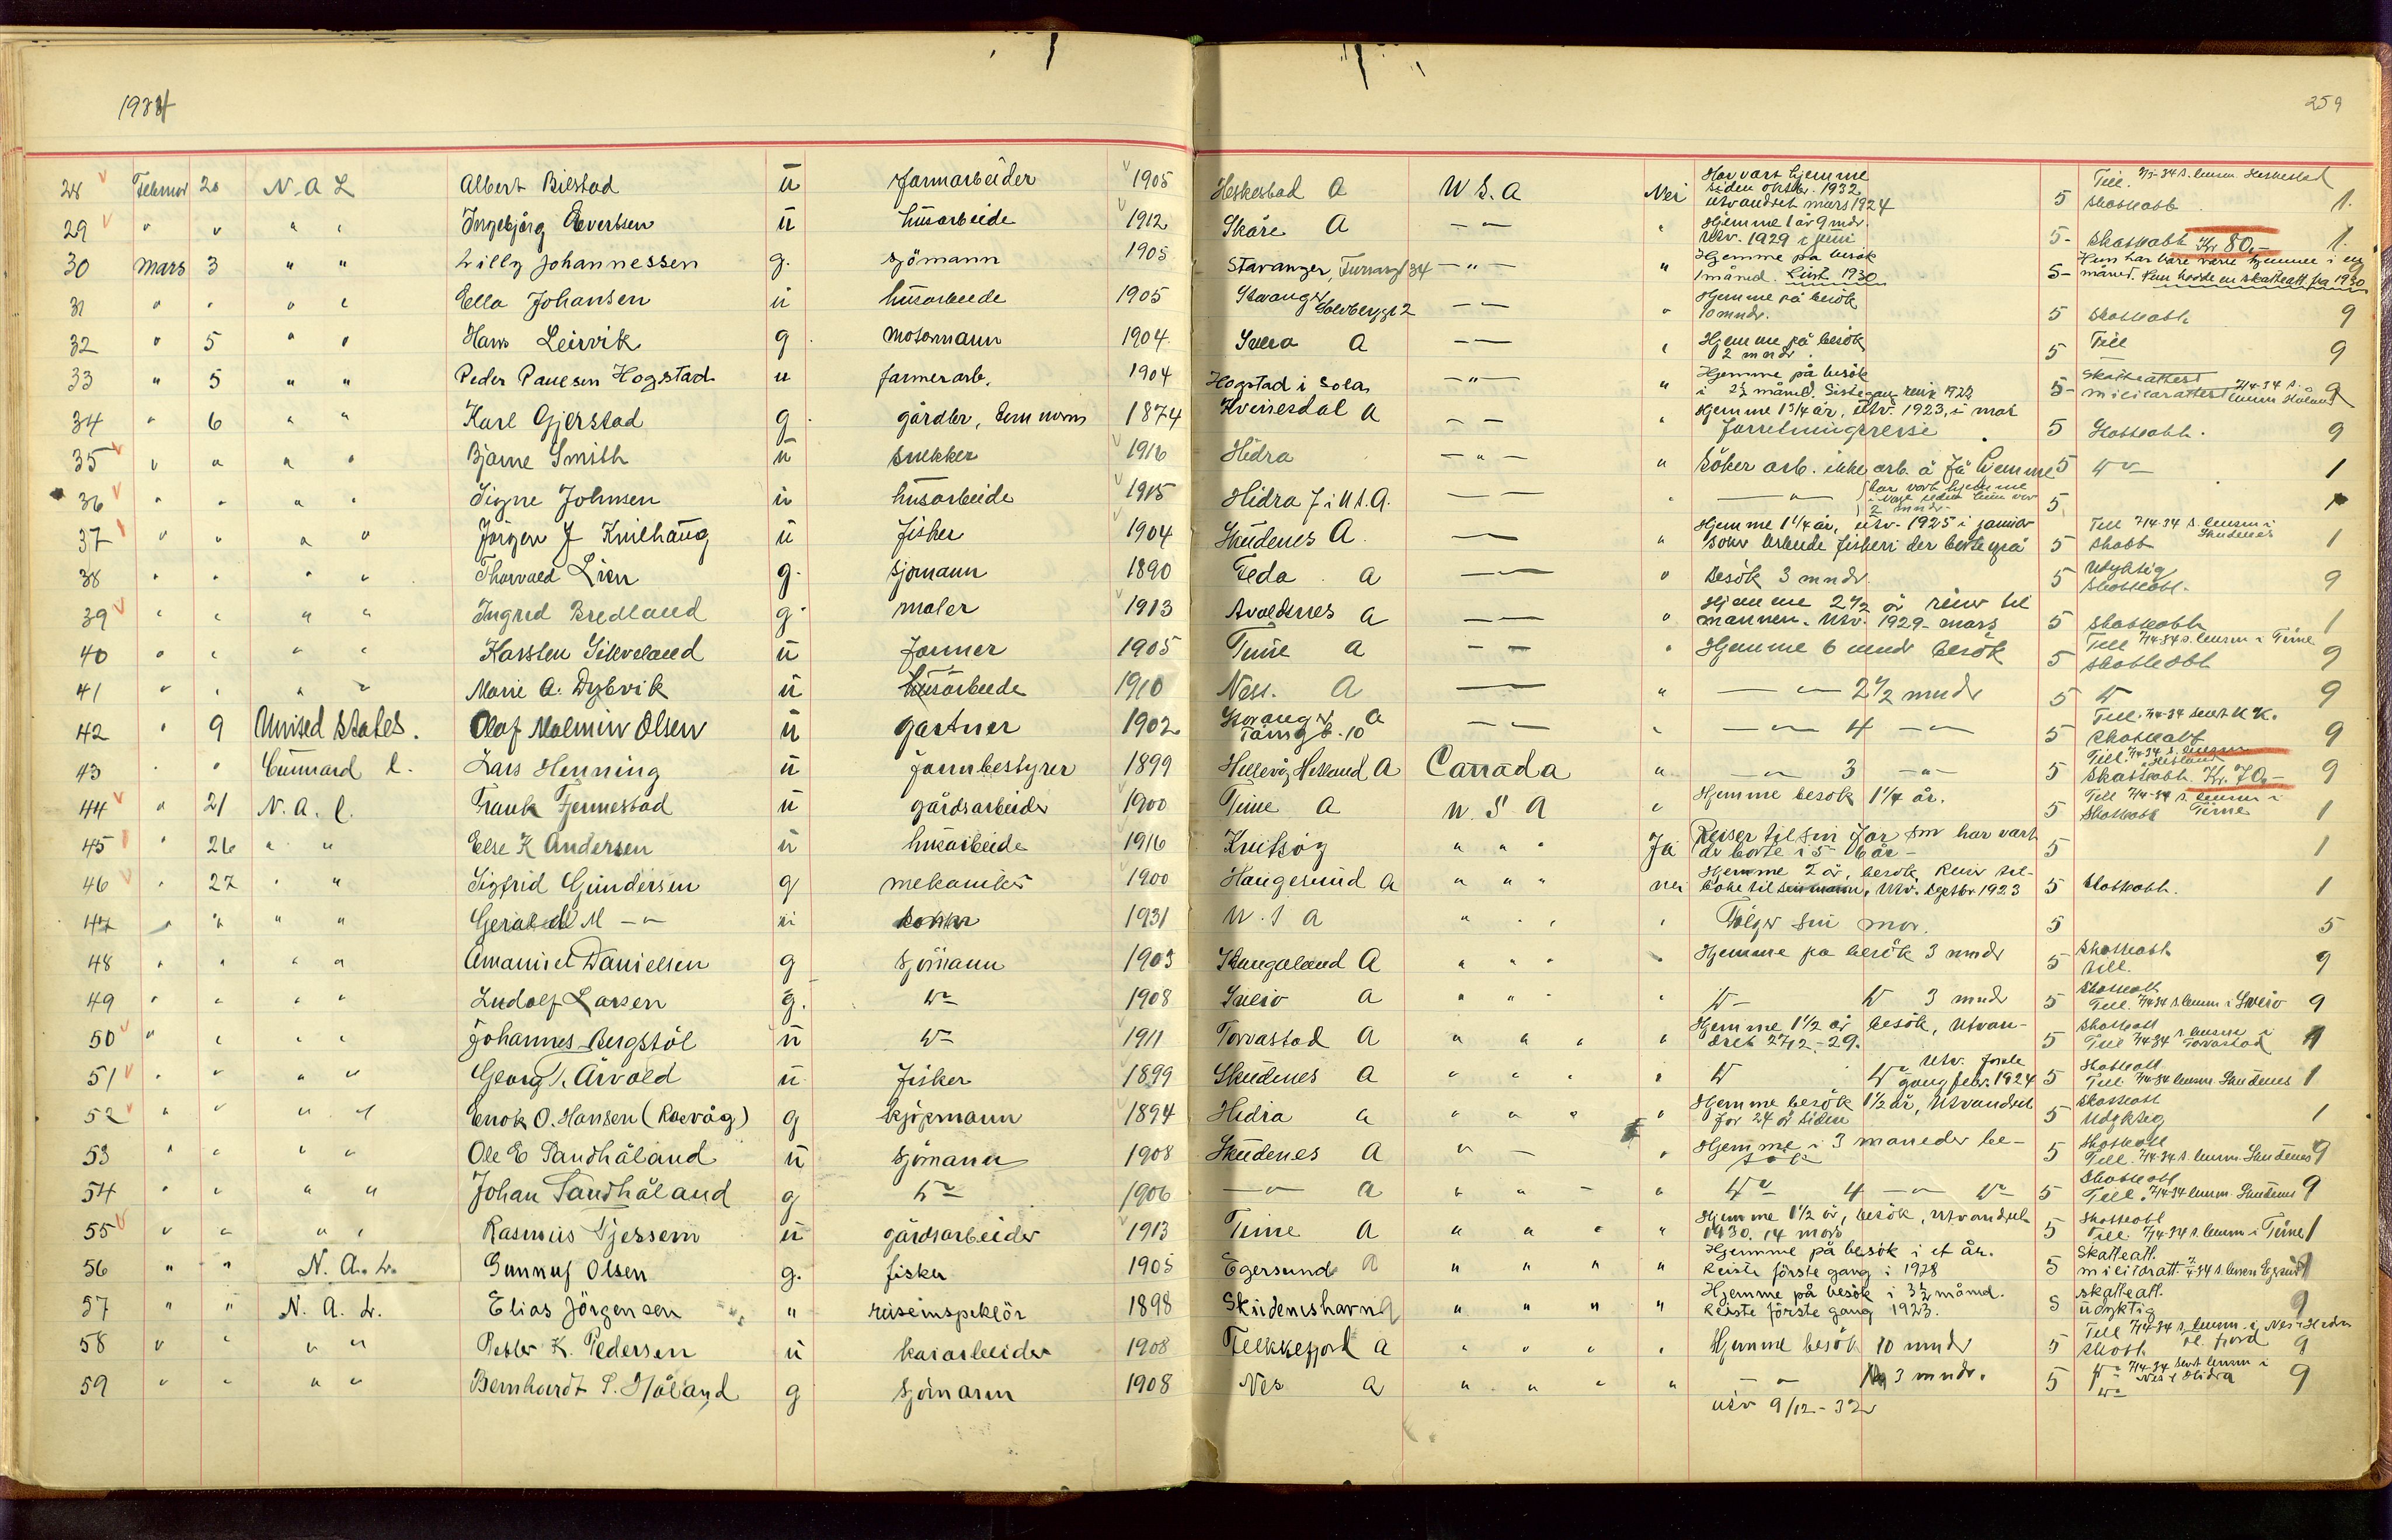 1934
259
28 Februar 28 N. A L Albert Bilstad u farmarbeider 1905 Heskestad A U S. A Nei Har vært hjemme siden oktbr. 1932 utvandret mars 1924 5 Till. s. lensm. Heskestad skatteatt. 1.
29 " " " " Ingebjørg Evertsen u husarbeide 1912 Skåre A — — " Hjemme 1 år 9 mdr. utv. 1929 i juni 5- skatteatt Kr 80,- 1.
30 mars 3 " " Willy Johannessen g. sjömann 1905 Stavanger, 34 — " — " Hjemme på besök 1 måned. 1930 5- Hun har bare være hjemme i en måned. Hun hadde en skatteatt. fra 1930 9
31 " " " " Ella Johansen u husarbeide 1905 Stavanger 2 — — " Hjemme på besök 10 mndr. 5 skatteatt. 9
32 " 5 " " Hans Leirvik g. motormann 1904 Sveio A — — " Hjemme på besök 2 mndr. 5 Till 9
33 " 5 " " Peder Paulsen Hogstad u farmerarb. 1904 Hogstad i Sola — " — " Hjemme på besök i 2½ måned. 5- Skatteattest militærattest 7/4-34 s. lensm Håland 9
34 " 6 " " Karl Gjerstad g. gårdbr, 1874 Kvinesdal A — — " Hjemme 1 3/4 år, utv. 1923, i mai Forretningsreise 5 Skatteatt. 9
35 " " " " Bjarne Smith u snekker 1916 Hidra — " — " Söker arb. ikke arb. å få hjemme 5 do 1
36 " " " " Signe Johnsen u husarbeide 1915 Hidra f i U.S.A. — — " — " — har vært hjemme 5 1
37 " " " " Jörgen J Knilhaug u fisker 1904 Skudenes A. — " Hjemme 1 1/4 år, utv. 1925 i januar söker arbeide fiskeri der borte på 5 Till 7/4-34 s. lensm i Skudenes skatt 1
38 " " " " Thorvald Lien g. sjømann 1890 Feda A — — " Besök 3 mndr 5 Udyktig skatteatt. 9
39 " " " " Ingrid Bredland g. maler 1913 Avaldsnes A — — " Hjemme 2 1/2 år reiser til mannen. Utv. 1929 - mars 5 skatteatt 1
40 " " " " Karsten Sikveland u farmer 1905 Time A — — " Hjemme 6 mndr besök 5 Till 7/4-34 s. lensm i Time skatteatt 9
41 " " " " Marie A. Dybvik u husarbeide 1910 Ness. A — " — " — 2 1/2 mndr 5 do 9
42 " 9 United States. Olaf Malmin Olsen u gartner 1902 Stavanger A 10 — — " — " — 4 — " — 5 Till. 7/4-34 skatteatt 9
43 " " Cunnard L. Lars Henning u farmbestyrer 1899 Hetland A Canada " — " — 3 — " — 5 Till. 7/4-34 s. lensm i Hetland skatteatt. Kr. 70,- 9
44 " 21 N. A. L. Frank Fjermestad u gårdsarbeider 1900 Time A U. S A " Hjemme besök 1 1/4 år. 5 Till 7/4-34 s. lensm i Time skatteatt 1
45 " 26 " " Else K Andersen u husarbeide 1916 Kvitsøy " " " Ja Reiser til sin far som har vært der borte i 5 - 6 år - 5 1
46 " 27 " " Sigfrid Gundersen g mekaniker 1900 Haugesund A " " " nei Hjemme 2 år, besök Reiser tilbake til , Utv. septbr 1923 5 skatteatt. 1
47 " " " " Gerald M — " — u 1931 U. S A " " " " Fölger sin mor. 5 5
48 " " " " Amaniel Danielsen g sjömann 1903 Skaugaland A " " " " Hjemme pa besök 3 mndr 5 skatteatt. till. 9
49 " " " " Ludolf Larsen g. do 1908 Sveio A " " " " do do 3 mndr 5 skatteatt Till. 7/4-34 s. lensm. i Sveio 9
50 " " " " Johannes Bergstöl u do 1911 Torvastad A " " " " Hjemme 1 1/2 år besök, Utvandret 27/12-29. 5 skatteatt Till 7/4-34 s. lensm i Torvastad 1
51 " " " " Georg T. Årvold u fisker 1899 Skudenes A " " " " do do Utv. første gang febr. 1924 5 skatteatt Till 7/4-34 lensm. Skudenes 1
52 " " " " Enok O. Hansen (Roevåg) g kjöpmann 1894 Hidra A " " " " Hjemme besök 1 1/2 år, Utvandret for 24 år siden 5 skatteatt Udyktig 1
53 " " " " Ole E Sandhåland u sjömann 1908 Skudenes A " — " Hjemme i 3 maneder besök 5 skatteatt Till. 7/4-34 s. lensm. Skudenes 9
54 " " " " Johan Sandhåland g do 1906 — " — A " " " " do 4 — " do 5 skatteatt Till. 7/4-34 lensm. Skudenes 9
55 " " " " Rasmus Gjessem u gårdsarbeider 1913 Time A " " " " Hjemme 1 1/2 år, besök, utvandret 1930. 14 mars 5 skatteatt Till. 7/4-34 s. lensm i Time 1
56 " " N. A. L. Gunnuf Olsen g. fisker 1905 Egersund A " " " " Hjemme på besök i et år. Reiste förste gang i 1928 5 Skatteatt. militæratt. 7/4-34 s. lensm Egersund 1
57 " " N. A. L. Elias Jörgensen " reiseinspektör 1898 Skudeneshavn A " " " " Hjemme på besök i 3½ måned. Reiste förste gang 1923. 5 skatteatt. udyktig 9
58 " " " " Petter K. Pedersen u kaiarbeider 1908 Flekkefjord A " " " " Hjemme besök 10 mndr 5 Till 7/4-34 s lensm. i Nes i Hidra skatt 9
59 " " " " Bernhardt S. Håland g sjömann 1908 Nes A " " " " — " — 3 mndr. 5 do 7/4-34 lensm i Nes i Hidra do 9
utv 9/12 - 32